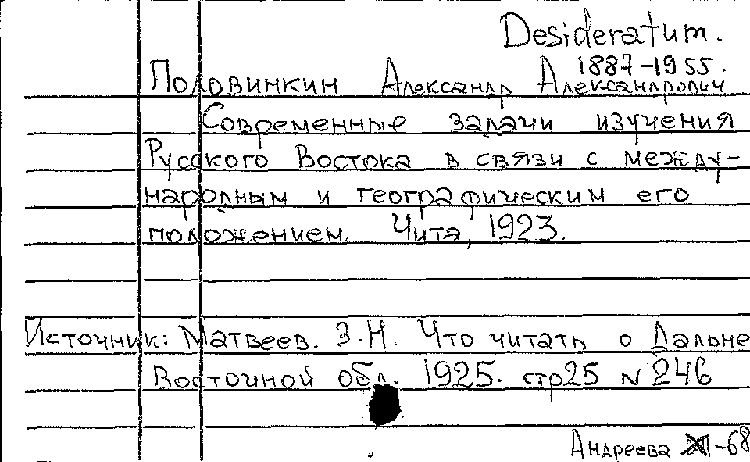 Desideratum.
1887-1955.
Половинкин Александр Александрович
Современные задачи изучения
Русского Востока в связи с между-
народным и географическим его
положением. Чита, 1923.
Источник: Матвеев. З.Н. Что читать о Дальне
Восточной обл. 1925. стр25 N 246
Андреева XI-68